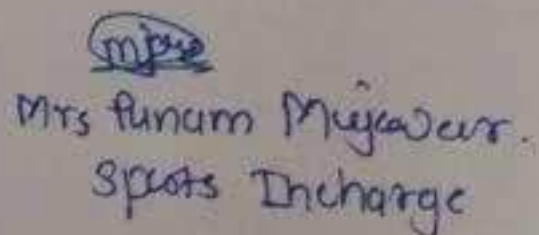 Mrs Punam Mujawar.
Sports Incharge